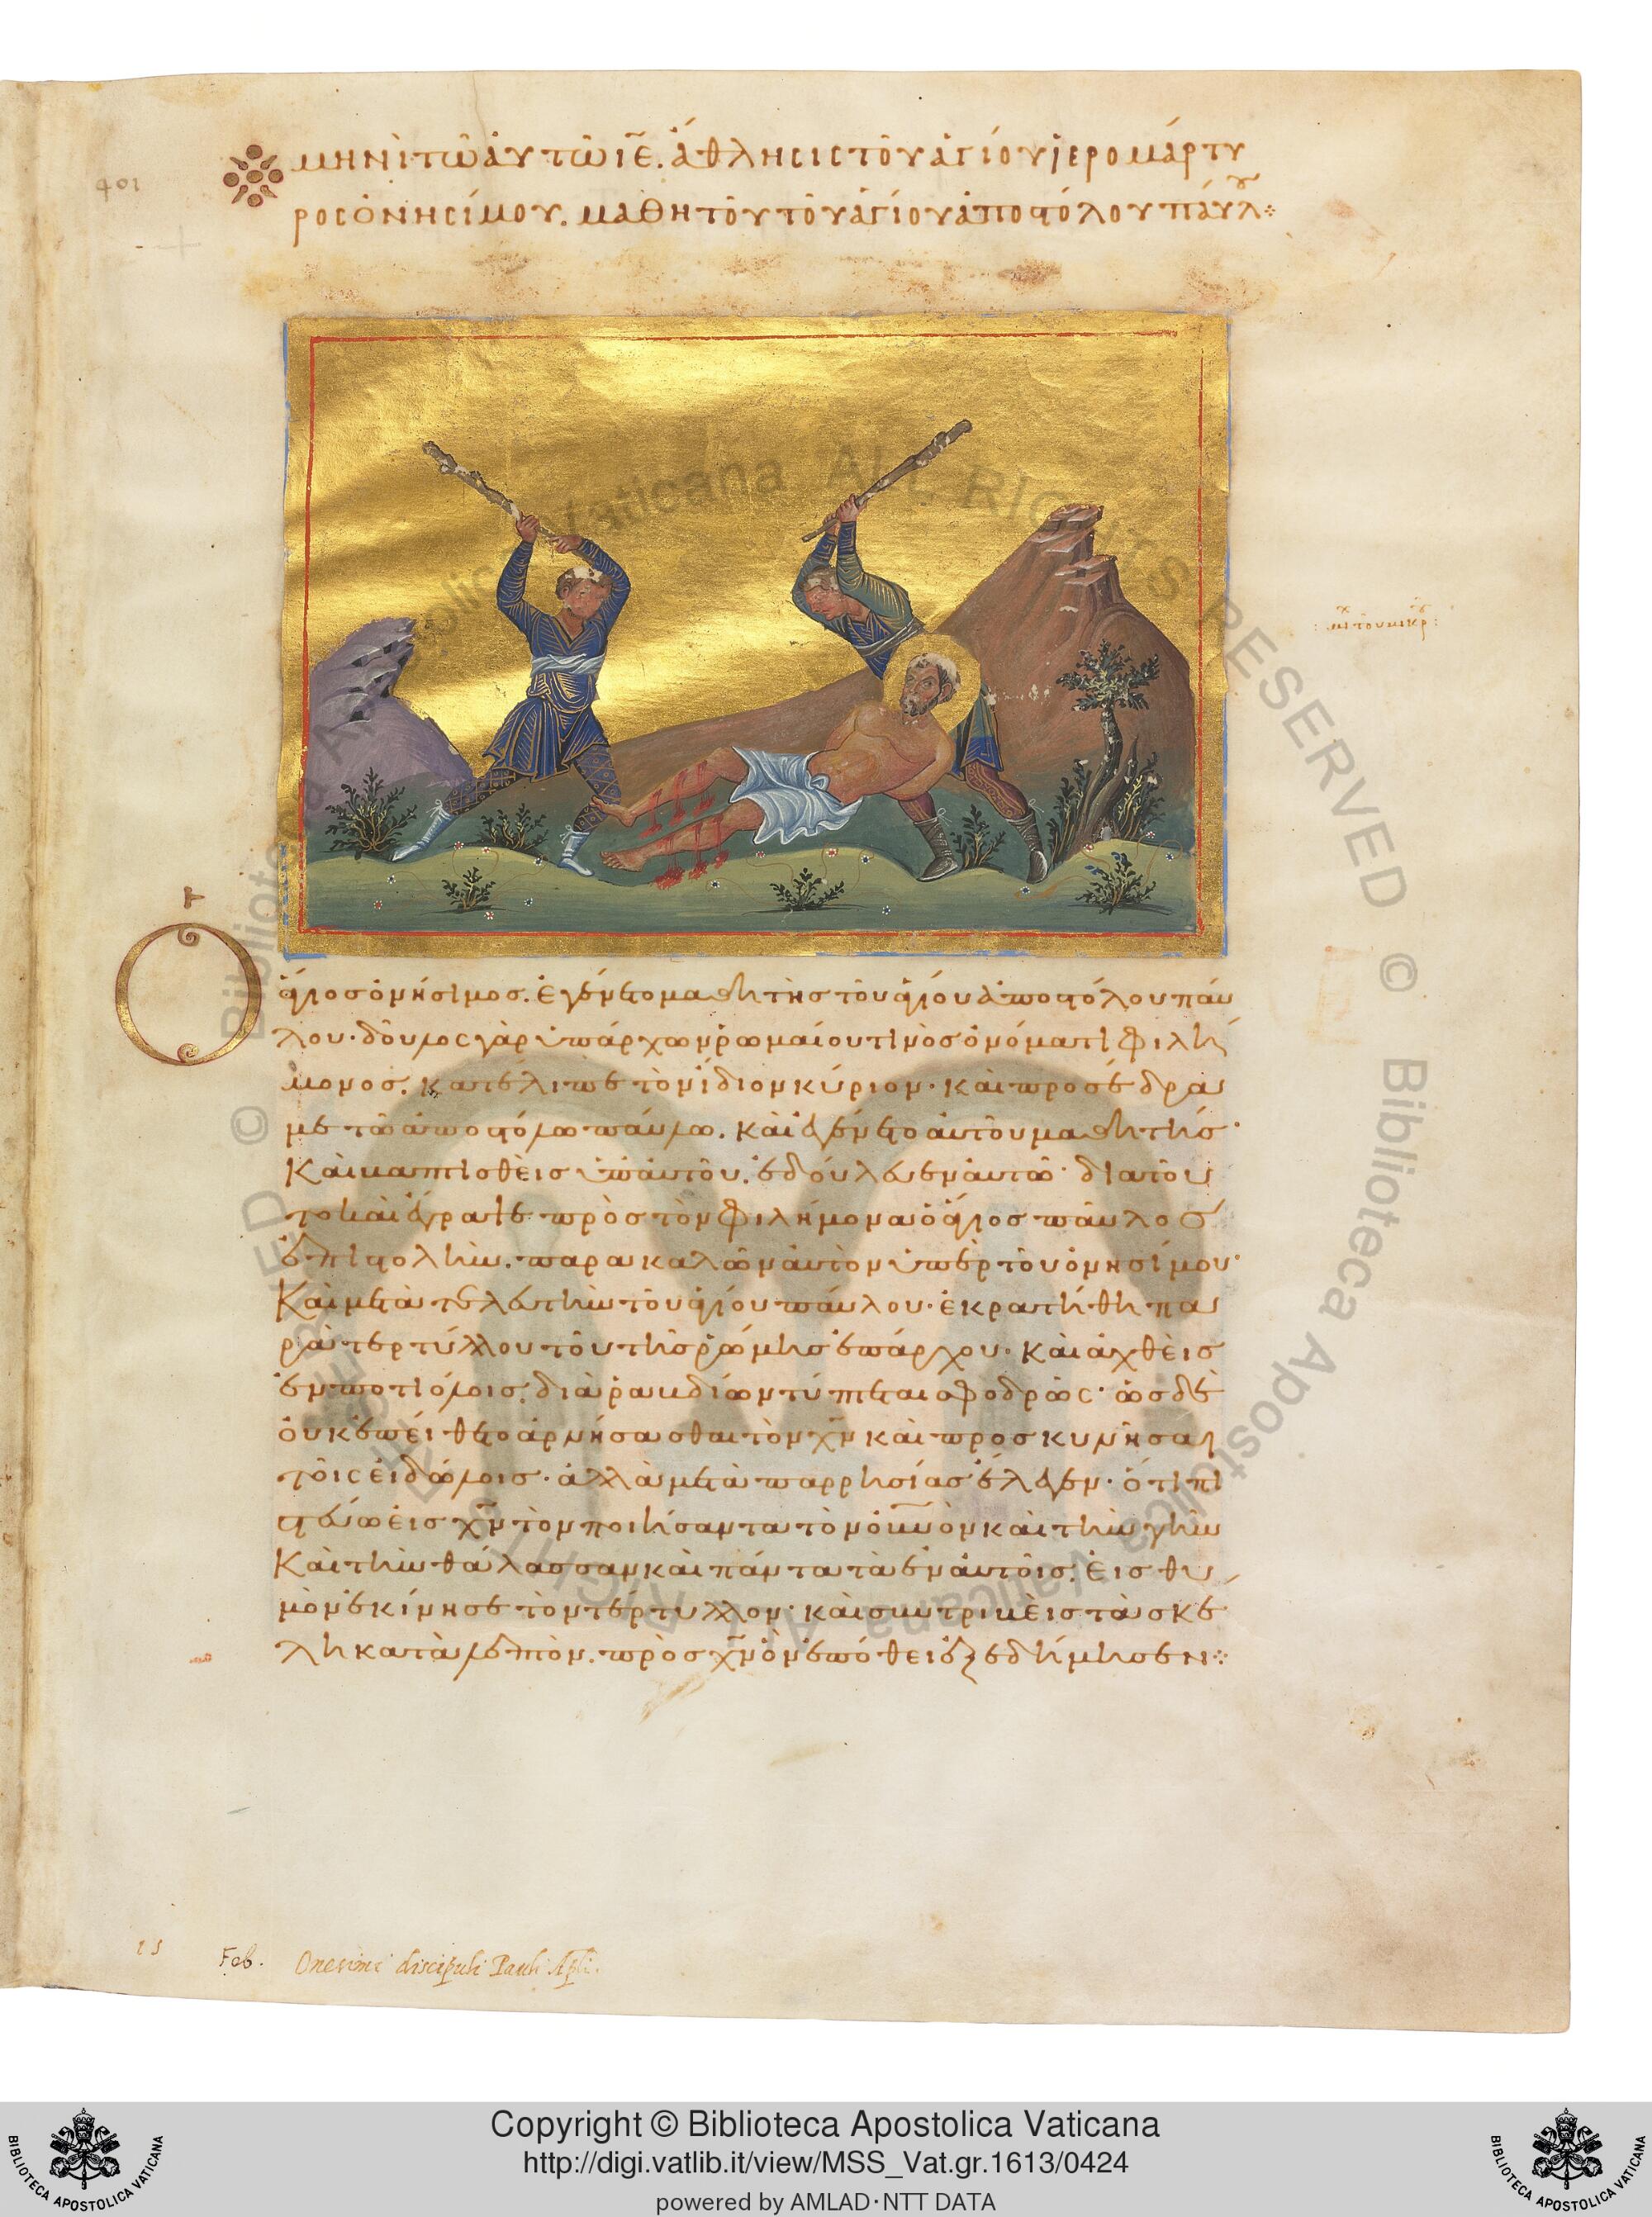 401
μηνὶ τῶ αὐτῶ ιε̄. ἄθλησις τοῦ ἁγίου ἱερομάρτυ
ρος ὀνησίμου. μαθητοῦ τοῦ ἁγίου ἀποστόλου παύλου
Ὁ ἅγιος ὀνήσιμος. ἐγένετο μαθητὴς τοῦ ἁγίου ἀποστόλου παύ
λου· δοῦλος γὰρ ὑπάρχων ῥωμαίου τινὸς ὀνόματι φιλή
μονος. κατέλιπε τὸν ἴδιον κύριον· καὶ προσέδρα
με τῶ ἀποστόλω παύλω. καὶ ἐγένετο αὐτοῦ μαθητής·
Καὶ βαπτισθεὶς ὑπ' αὐτοῦ. ἐδούλευεν αὐτῶ· διατοῦ
το καὶ ἔγραψε πρὸς τὸν φιλήμονα ὁ ἅγιος παῦλος
ἐπιστολὴν. παρακαλῶν αὐτὸν ὑπὲρ τοῦ ὀνησίμου·
Καὶ μετὰ τελευτὴν τοῦ ἁγίου παύλου· ἐκρατήθη πα
ρὰ τερτύλλου τοῦ τῆς ῥώμης ἐπάρχου· καὶ ἀχθεὶς
ἐν ποτιόλοις. διὰ ῥαβδίων τύπτεται σφοδρῶς· ὡς δὲ
οὐκ ἐπείθετο ἀρνήσασθαι τὸν χν̄ καὶ προσκυνῆσαι
τοῖς εἰδώλοις· ἀλλὰ μετὰ παρρησίας ἔλεγεν· ὅτι πι
στεύω εἰς χν̄ τὸν ποιήσαντα τὸν οὐνὸν καὶ τὴν γῆν
Καὶ τὴν θάλασσαν καὶ πάντα τὰ ἐν αὐτοῖς. εἰς θυ
μὸν ἐκίνησε τὸν τέρτυλλον· καὶ συντριβεὶς τὰ σκέ
λη κατὰ λεπτὸν. πρὸς χν̄ ὃν ἐπόθει ἐξεδήμησεν
15 Feb. Onesimi discipuli Pauli Apli.
Copyright © Biblioteca Apostolica Vaticana
http://digi.vatlib.it/view/MSS_Vat.gr.1613/0424
powered by AMLAD·NTT DATA
BIBLIOTECA APOSTOLICA VATICANA
BIBLIOTECA APOSTOLICA VATICANA
© Biblioteca Apostolica Vaticana ALL RIGHTS RESERVED © Biblioteca Apostolica Vaticana ALL RIGHTS RESERVED